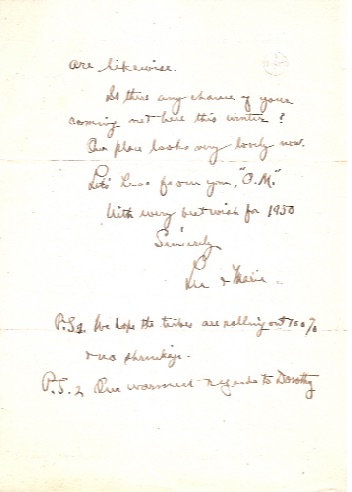 are likewise.
Is there any chance of your
coming out here this winter?
Our place looks very lovely now.
Let's hear from you, "O.M."
With every best wish for 1950
Sincerely
Lee & Marie
P.S. 1 We hope the tubes are rolling out 100%
& no shrinkage.
P.S. 2 Our warmest regards to Dorothy